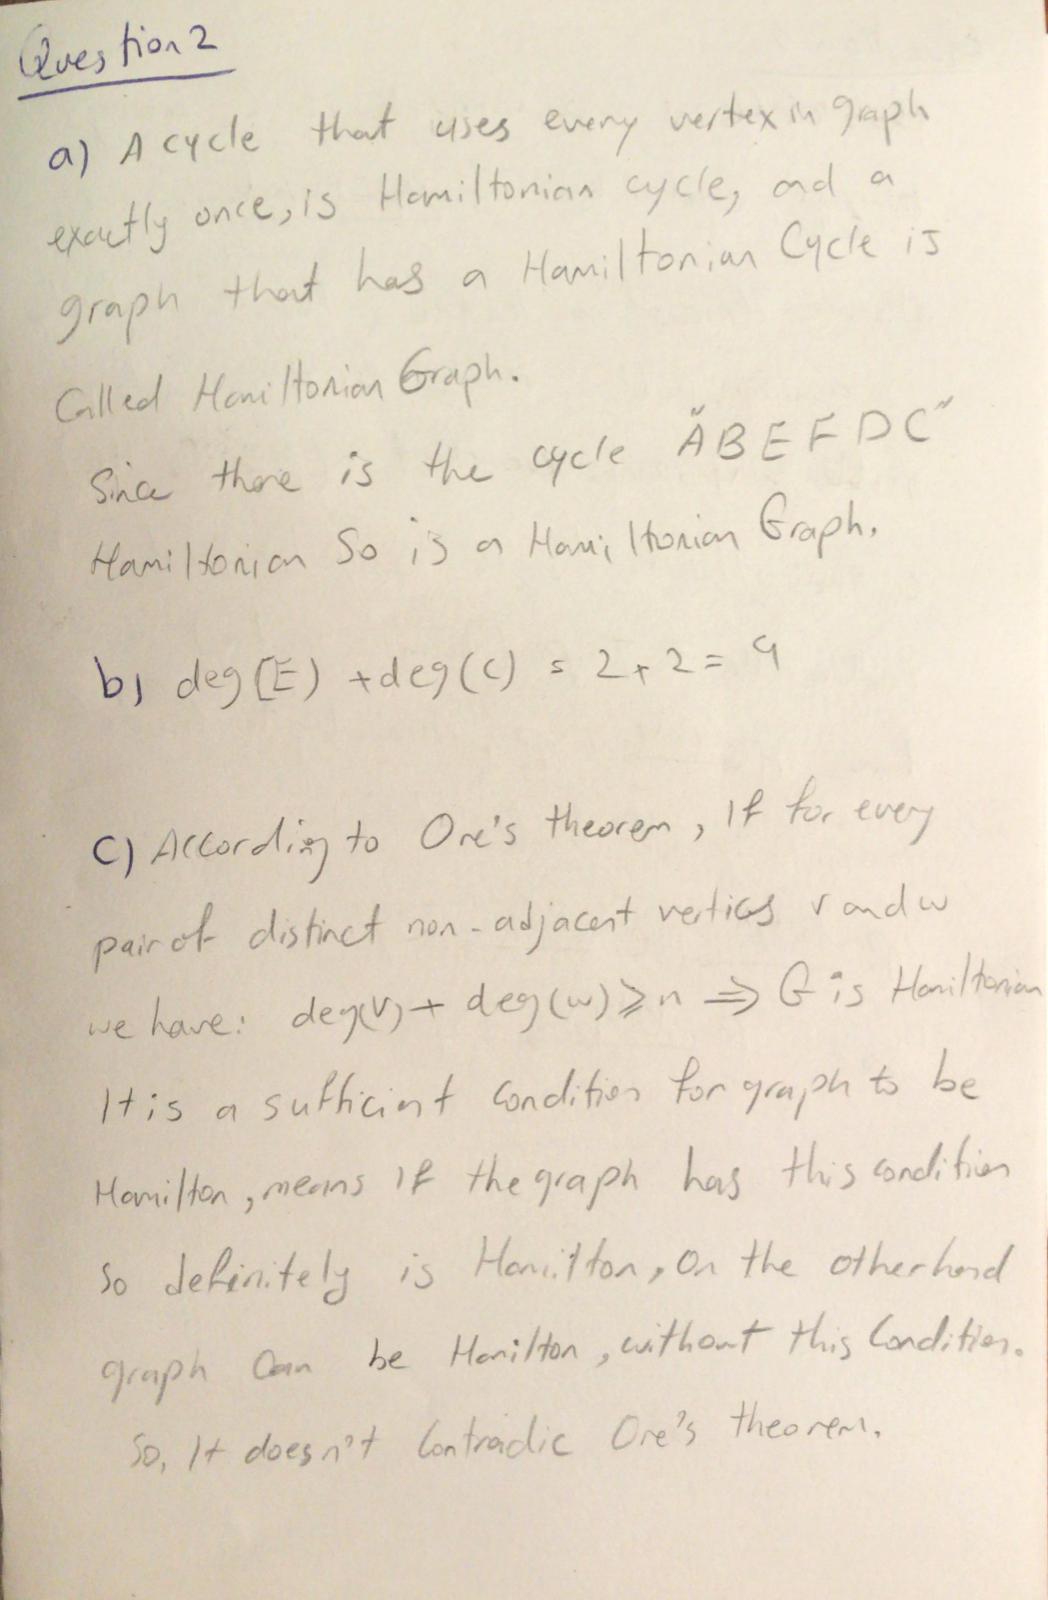 Question 2
a) A cycle that uses every vertex in graph
exactly once, is Hamiltonian cycle, and a
graph that has a Hamiltonian Cycle is
Called Hamiltonian Graph.
Since there is the cycle "ABEFDC"
Hamiltonian So is a Hamiltonian Graph.
b) deg(E) + deg(C) = 2+2 = 4
C) According to Ore's theorem, If for every
pair of distinct non-adjacent vertics v and w
we have: deg(v) + deg(w) ⩾ n ⇒ G is Hamiltonian
It is a sufficient Condition for graph to be
Hamilton, means if the graph has this condition
so definitely is Hamilton, On the other hand
graph Can be Hamilton, without this Condition.
So, It doesn't Contradic Ore's theorem.